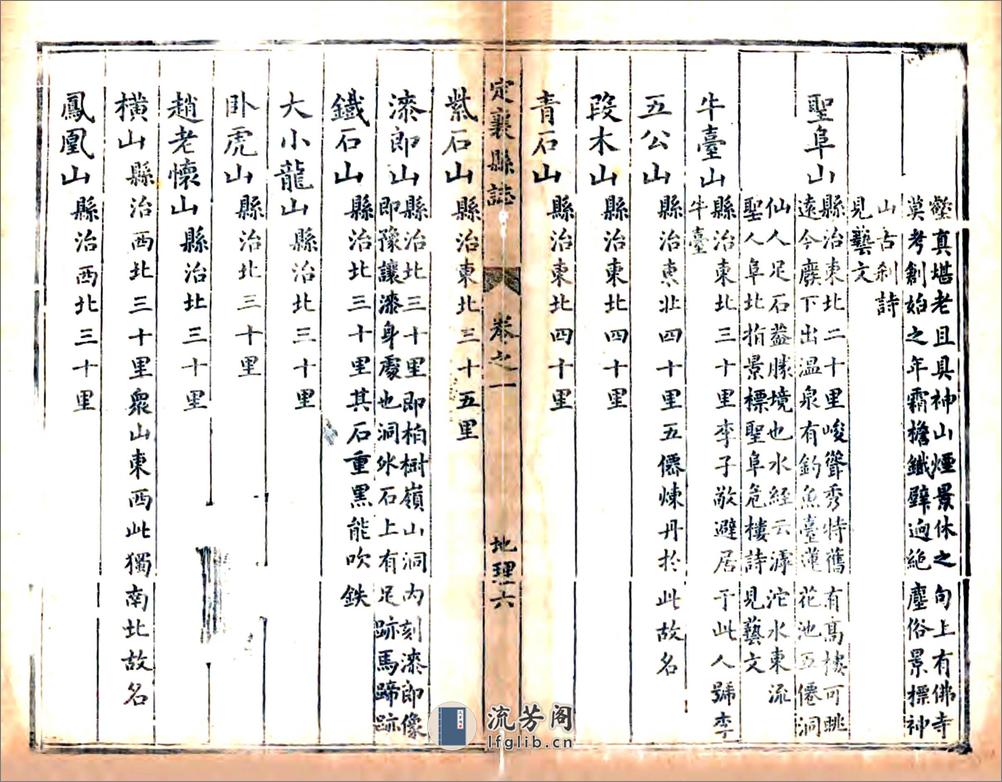 壑真堪老且具神山煙景休之句上有佛寺
莫考創始之年霜檐鐵壁逈絶塵俗景標神
山古刹詩
見藝文
聖阜山
縣治東北二十里峻聳秀特舊有髙樓可眺
遠今廢下出溫泉有釣魚臺蓮花池五僊洞
仙人足石益勝境也水經云滹沱水東流
聖人阜北指景標聖阜危樓詩見藝文
牛臺山
縣治東北三十里李子敵避居于此人號李
牛臺
五公山
縣治東北四十里五僊煉丹於此故名
段木山
縣治東北四十里
青石山
縣治東北四十里
定襄縣誌
卷之一
地理
六
紫石山
縣治東北三十五里
漆郎山
縣治北三十里即柏樹嶺山洞内刻漆郎像
即豫讓漆身處也洞外石上有足跡馬蹄跡
鐵石山
縣治北三十里其石重黑能吹鉄
大小龍山
縣治北三十里
卧虎山
縣治北三十里
趙老懷山
縣治北三十里
橫山
縣治西北三十里衆山東西此獨南北故名
鳳凰山
縣治西北三十里
流芳阁
lfglib.cn